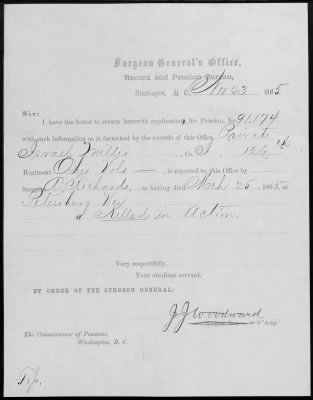 Surgeon General's Office,
Record and Pension Bureau,
Washington, D. C., Nov 23 1865
Sir:
I have the honor to return herewith application for Pension, No. 91,174
with such information as is furnished by the records of this Office. Private
Israel Willis, Co. I, 126th
Regiment Ohio Vols, is reported to this Office by
Surgeon A. Richards, as having died Mch 25, 1865, at
Petersburg Va
Killed in Action.
Very respectfully,
Your obedient servant,
BY ORDER OF THE SURGEON GENERAL:
J J Woodward
U. S. Army.
The Commissioner of Pensions,
Washington, D. C.